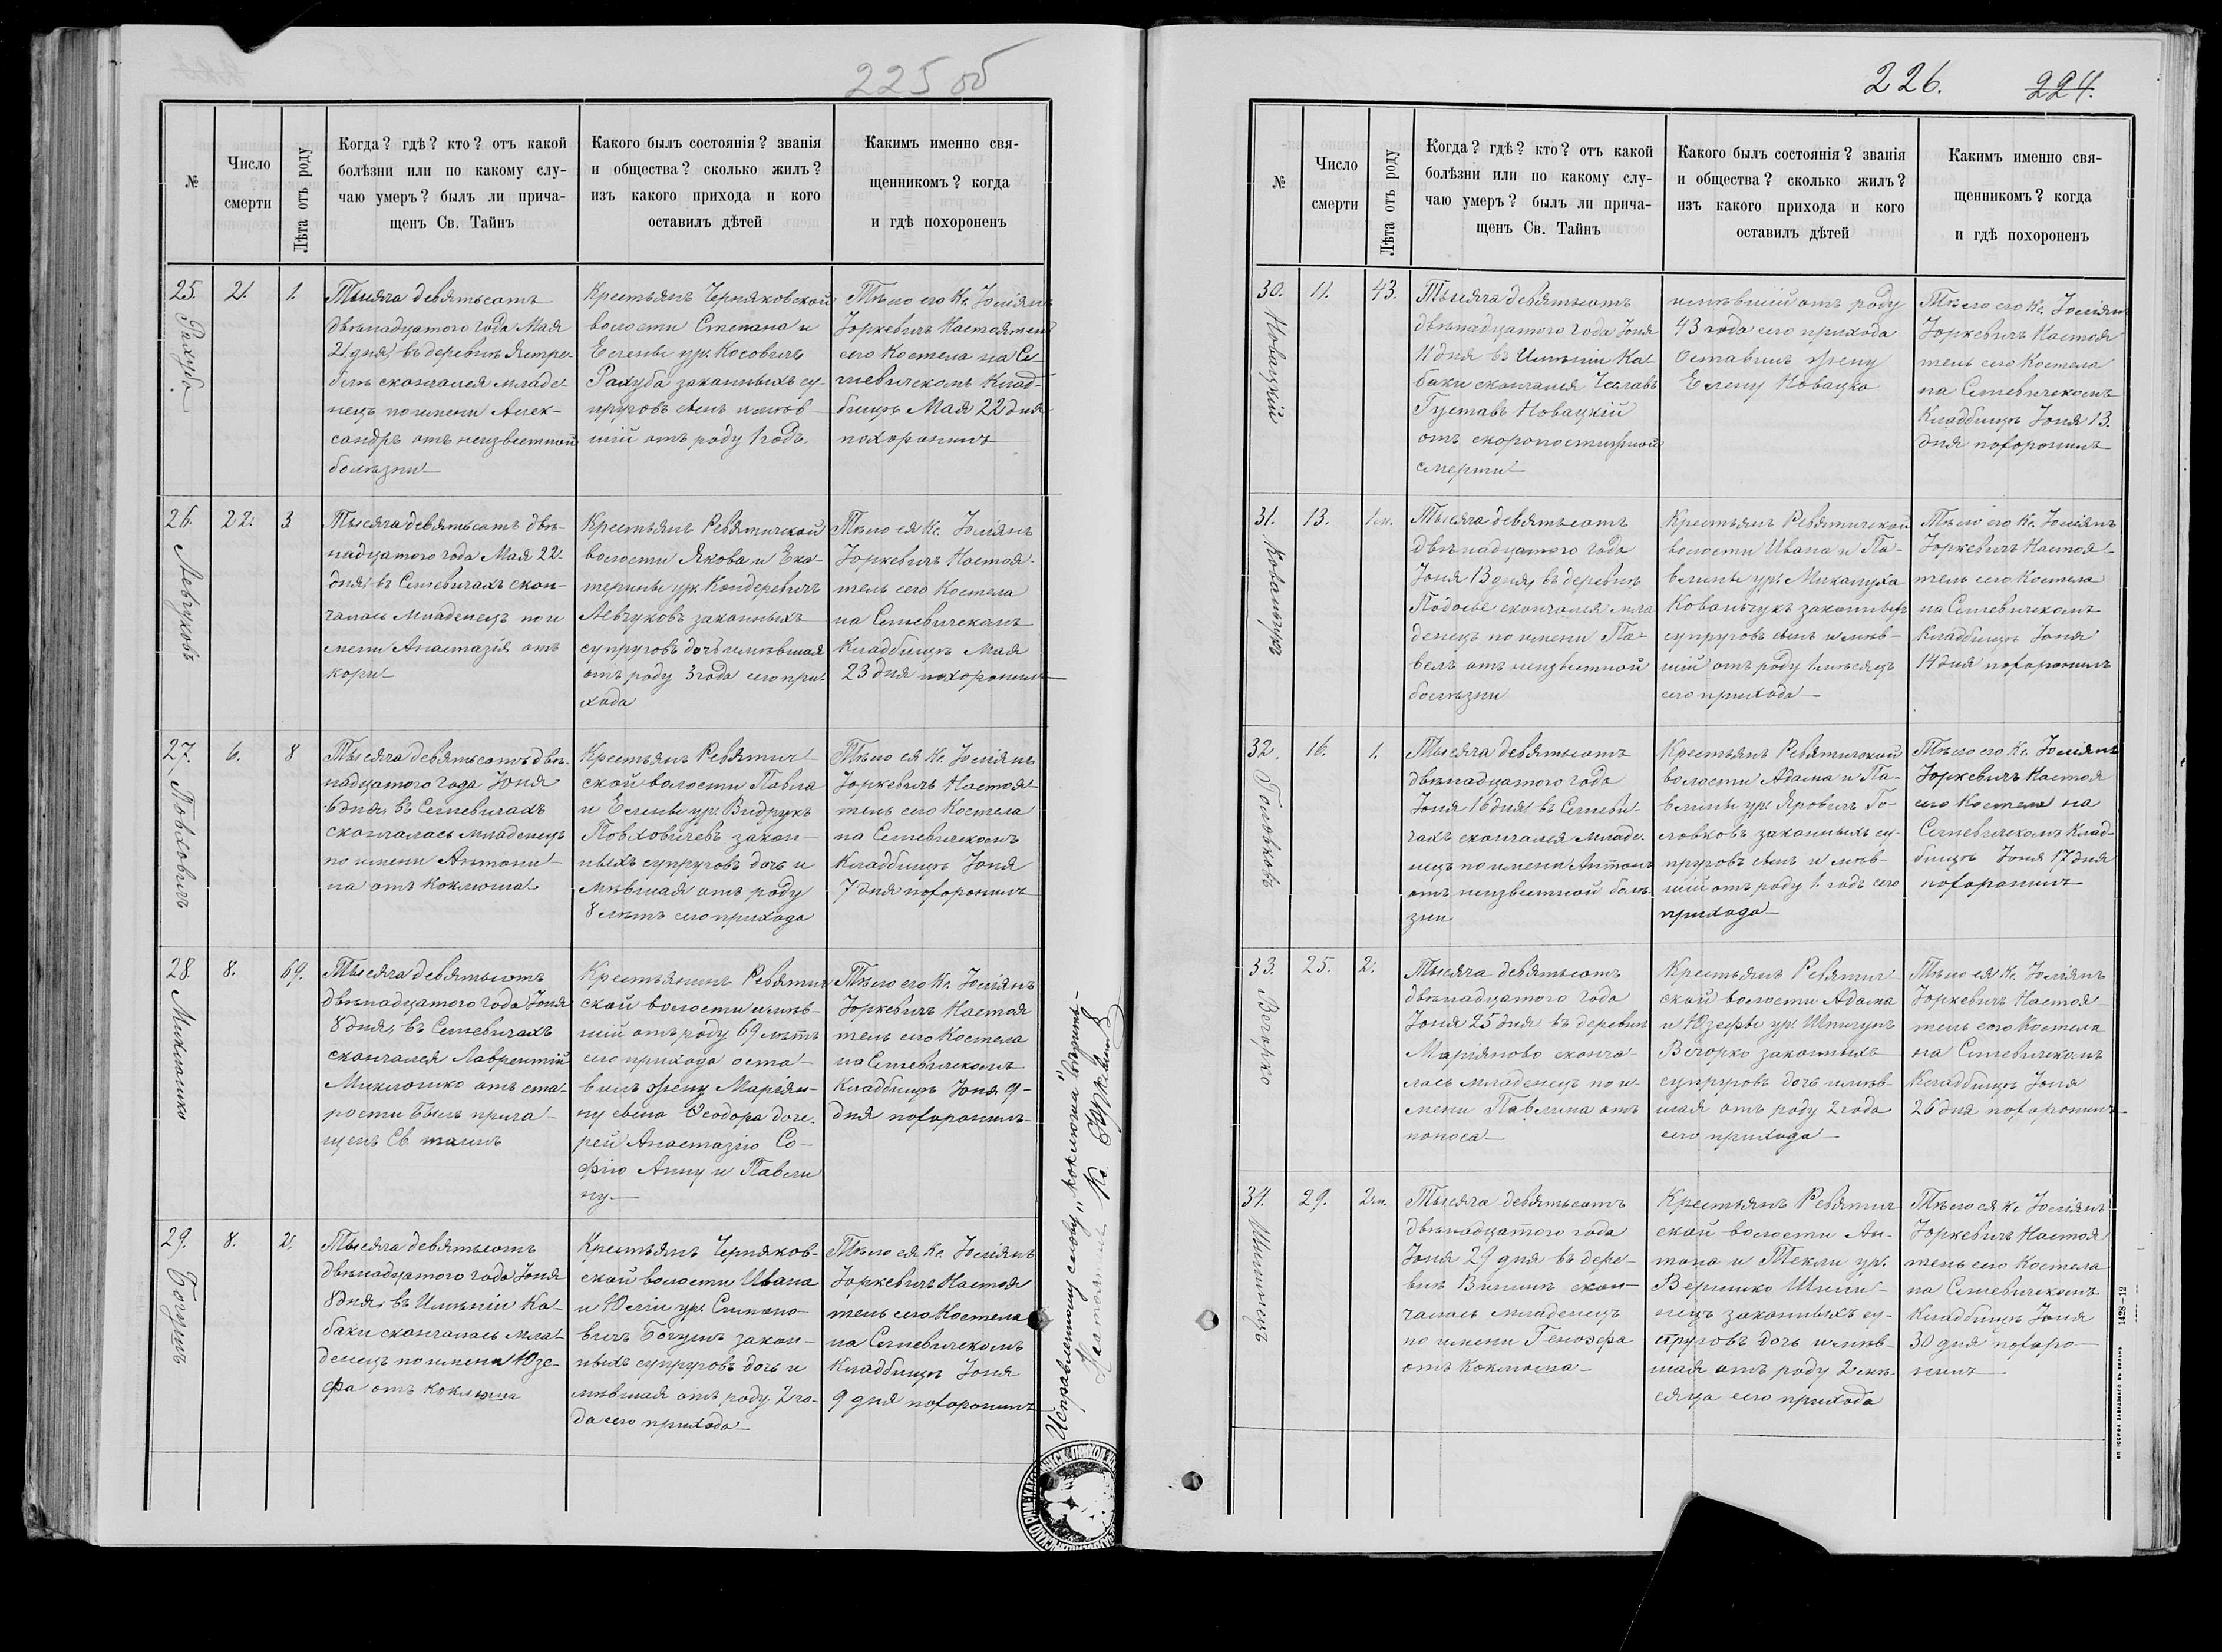 225 об
№
Число
смерти
Лѣта отъ роду
Когда? гдѣ? кто? отъ какой
болѣзни или по какому слу-
чаю умеръ? былъ ли прича-
щенъ Св. Тайнъ
Какого былъ состоянія? званія
и общества? сколько жилъ?
изъ какого прихода и кого
оставилъ дѣтей
Какимъ именно свя-
щенникомъ? когда
и гдѣ похороненъ
25.
Рахуба
21.
1.
Тысяча девятьсотъ
двѣнадцатого года Мая
21 дня, въ деревнѣ Ястре-
блѣ скончался младе-
нецъ по имени Алек-
сандръ отъ неизвѣстной
болѣзни
Крестьянъ Черняковской
волости Степана и
Елены ур. Косовичъ
Рахуба законныхъ су-
пруговъ сынъ имѣв-
шій отъ роду 1 годъ.
Тѣло его Кс. Юліянъ
Юркевичъ Настоятель
сего Костела на Се-
гневичскомъ Клад-
бищѣ Мая 22 дня
похоронилъ
26.
Левчуковъ
22.
3
Тысяча девятьсотъ двѣ-
надцатого года Мая 22
дня, въ Сегневичахъ скон-
чалась младенецъ по и
мени Анастазія отъ
кори
Крестьянъ Ревятичской
волости Якова и Ека-
терины ур. Кондеревичъ
Левчуковъ законныхъ
супруговъ дочь имѣвшая
отъ роду 3 года сего при-
хода
Тѣло ея Кс. Юліянъ
Юркевичъ Настоя-
тель сего Костела
на Сегневичскомъ
Кладбищѣ Мая
23 дня похоронилъ
27.
Повховичъ
6.
8
Тысяча девятьсотъ двѣ-
надцатого года Іюня
6 дня, въ Сегневичахъ
скончалась младенецъ
по имени Антони-
на отъ коклюша
Крестьянъ Ревятич-
ской волости Павла
и Елены ур. Видрукъ
Повховичевъ закон-
ныхъ супруговъ дочь и
мѣвшая отъ роду
8 лѣтъ сего прихода
Тѣло ея Кс. Юліянъ
Юркевичъ Настоя-
тель сего Костела
на Сегневичскомъ
Кладбищѣ Іюня
7 дня похоронилъ
28.
Миклошко
8.
69.
Тысяча девятьсотъ
двѣнадцатого года Іюня
8 дня, въ Сегневичахъ
скончался Лаврентій
Миклошко отъ ста-
рости былъ прича-
щенъ Св. таинъ
Крестьянинъ Ревятич
ской волости имѣв-
шій отъ роду 69 лѣтъ
сего прихода оста-
вилъ жену Маріян-
ну сына Ѳеодора доче-
рей Анастазію Со-
фію Анну и Павели
ну
Тѣло его Кс. Юліянъ
Юркевичъ Настоя
тель сего Костела
на Сегневичскомъ
Кладбищѣ Іюня 9-
дня похоронилъ
29.
Богушъ
8.
2.
Тысяча девятьсотъ
двѣнадцатого года Іюня
8 дня, въ Имѣніи Ка-
баки скончалась мла-
денецъ по имени Юзе-
фа отъ коклюша
Крестьянъ Черняков-
ской волости Ивана
и Юліи ур. Симоно-
вичъ Богушъ закон-
ныхъ супруговъ дочь и
мѣвшая отъ роду 2 го-
да сего прихода
Тѣло ея Кс. Юліянъ
Юркевичъ Настоя
тель сего Костела
на Сегневичскомъ
Кладбищѣ Іюня
9 дня похоронилъ
Исправленному слову „коклюша" вѣрить
Настоятель Кс. Юркевичъ
226.
224.
№
Число
смерти
Лѣта отъ роду
Когда? гдѣ? кто? отъ какой
болѣзни или по какому слу-
чаю умеръ? былъ ли прича-
щенъ Св. Тайнъ
Какого былъ состоянія? званія
и общества? сколько жилъ?
изъ какого прихода и кого
оставилъ дѣтей
Какимъ именно свя-
щенникомъ? когда
и гдѣ похороненъ
30.
Новацкій
11.
43.
Тысяча девятьсотъ
двѣнадцатого года Іюня
11 дня въ Имѣніи Ка-
баки скончался Чеславъ
Густавъ Новацкій
отъ скоропостижной
смерти
имѣвшій отъ роду
43 года сего прихода
Оставилъ жену
Елену Новацка
Тѣло его Кс. Юліянъ
Юркевичъ Настоя
тель сего Костела
на Сегневичскомъ
Кладбищѣ Іюня 13.
дня похоронилъ
31.
Ковальчукъ
13.
1 м.
Тысяча девятьсотъ
двѣнадцатого года
Іюня 13 дня, въ деревнѣ
Подосье скончался мла
денецъ по имени Па-
велъ отъ неизвѣстной
болѣзни
Крестьянъ Ревятичской
волости Ивана и Па-
велины ур. Микалуха
Ковальчукъ законныхъ
супруговъ сынъ имѣв-
шій отъ роду 1 мѣсяцъ
сего прихода
Тѣло его Кс. Юліянъ
Юркевичъ Настоя-
тель сего Костела
на Сегневичскомъ
Кладбищѣ Іюня
14 дня похоронилъ
32.
Головковъ
16.
1.
Тысяча девятьсотъ
двѣнадцатого года
Іюня 16 дня, въ Сегневи-
чахъ скончался младе-
нецъ по имени Антонъ
отъ неизвѣстной болѣ-
зни
Крестьянъ Ревятичской
волости Адама и Па-
велины ур. Яровичъ Го-
ловковъ законныхъ су-
пруговъ сынъ имѣв-
шій отъ роду 1. годъ сего
прихода
Тѣло его Кс. Юліянъ
Юркевичъ Настоя
сего Костела на
Сегневичскомъ Клад-
бищѣ Іюня 17 дня
похоронилъ
33.
Вечорко
25.
2.
Тысяча девятьсотъ
двѣнадцатого года
Іюня 25 дня въ деревнѣ
Маріяново сконча-
лась младенецъ по и-
мени Павлина отъ
поноса
Крестьянъ Ревятич
ской волости Адама
и Юзефы ур. Шпигунъ
Вечорко законныхъ
супруговъ дочь имѣв-
шая отъ роду 2 года
сего прихода
Тѣло ея Кс. Юліянъ
Юркевичъ Настоя-
тель сего Костела
на Сегневичскомъ
Кладбищѣ Іюня
26 дня похоронилъ
34.
29.
2 м.
Тысяча девятьсотъ
двѣнадцатого года
Іюня 29 дня въ дере-
внѣ скон-
чалась младенецъ
по имени Геноэфа
отъ коклюша
Крестьянъ Ревятич
ской волости Ан-
тона и Текли ур.
законныхъ су-
пруговъ дочь имѣв-
шая отъ роду 2 мѣ-
сяца сего прихода
Тѣло ея Кс. Юліянъ
Юркевичъ Настоя
тель сего Костела
на Сегневичскомъ
Кладбищѣ Іюня
30 дня похоро-
нилъ
1428—12